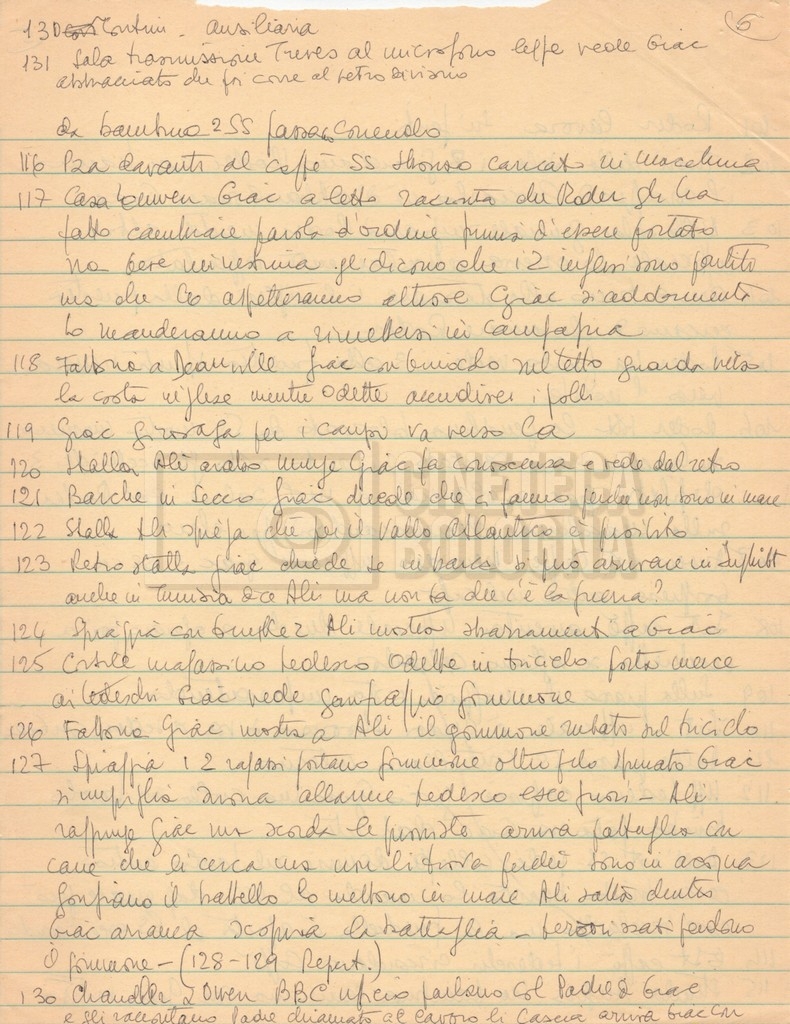 5
130 Contini - ausiliaria
131 Sala trasmissione Treves al microfono legge vede Giac
abbracciato che poi corre al retro
Da bambino 2 SS passano correndo
116 Pza davanti al caffè SS stronzo caricato in macchina
117 Casa Owen Giac a letto racconta che Roder gli ha
fatto cambiare parola d'ordine prima d'essere portato
via beve minestrina gli dicono che i 2 inglesi sono partiti
ma che lo aspetteranno altrove Giac si addormenta
lo manderanno a rimettersi in campagna
118 Fattoria a Deauville Giac con binocolo sul tetto guarda verso
la costa inglese mentre Odette accudisce i polli
119 Giac girovaga per i campi va verso là
120 Stalla Alì arabo munge Giac fa conoscenza e vede dal retro
121 Barche in secco Giac chiede che ci fanno perché non sono in mare
122 Stalla Alì spiega che per il Vallo Atlantico è proibito
123 Retro stalla Giac chiede se in barca si può arrivare in Inghilt
anche in Tunisia dice Alì ma non sa che c'è la guerra?
124 Spiaggia con Alì mostra sbarramenti a Giac
125 Cortile magazzino tedesco Odette in triciclo porta merce
ai tedeschi Giac vede gommone
126 Fattoria Giac mostra a Alì il gommone rubato sul triciclo
127 Spiaggia i 2 ragazzi portano gommone oltre filo spinato Giac
si impiglia suona allarme tedesco esce fuori - Alì
raggiunge Giac ma scorda le arriva pattuglia con
cane che li cerca ma non li trova perché sono in acqua
gonfiano il battello lo mettono in mare Alì salta dentro
Giac arranca scoppia la battaglia - perdono
il gommone - (128-129 Repert.)
130 Chandler & Owen BBC ufficio parlano col Padre di Giac
e gli raccontano Padre chiamato al lavoro li lascia arriva Giac con
CINETECA
BOLOGNA